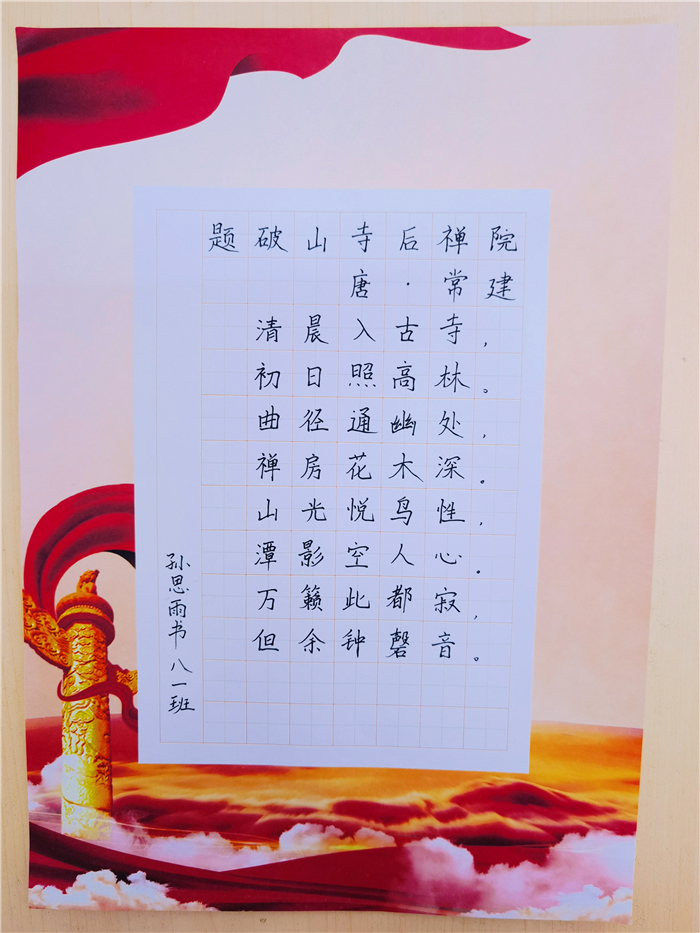 题破山寺后禅院
唐·常建
清晨入古寺,
初日照高林。
曲径通幽处,
禅房花木深。
山光悦鸟性,
潭影空人心。
万籁此都寂,
但余钟磬音。
孙思雨书 八一班